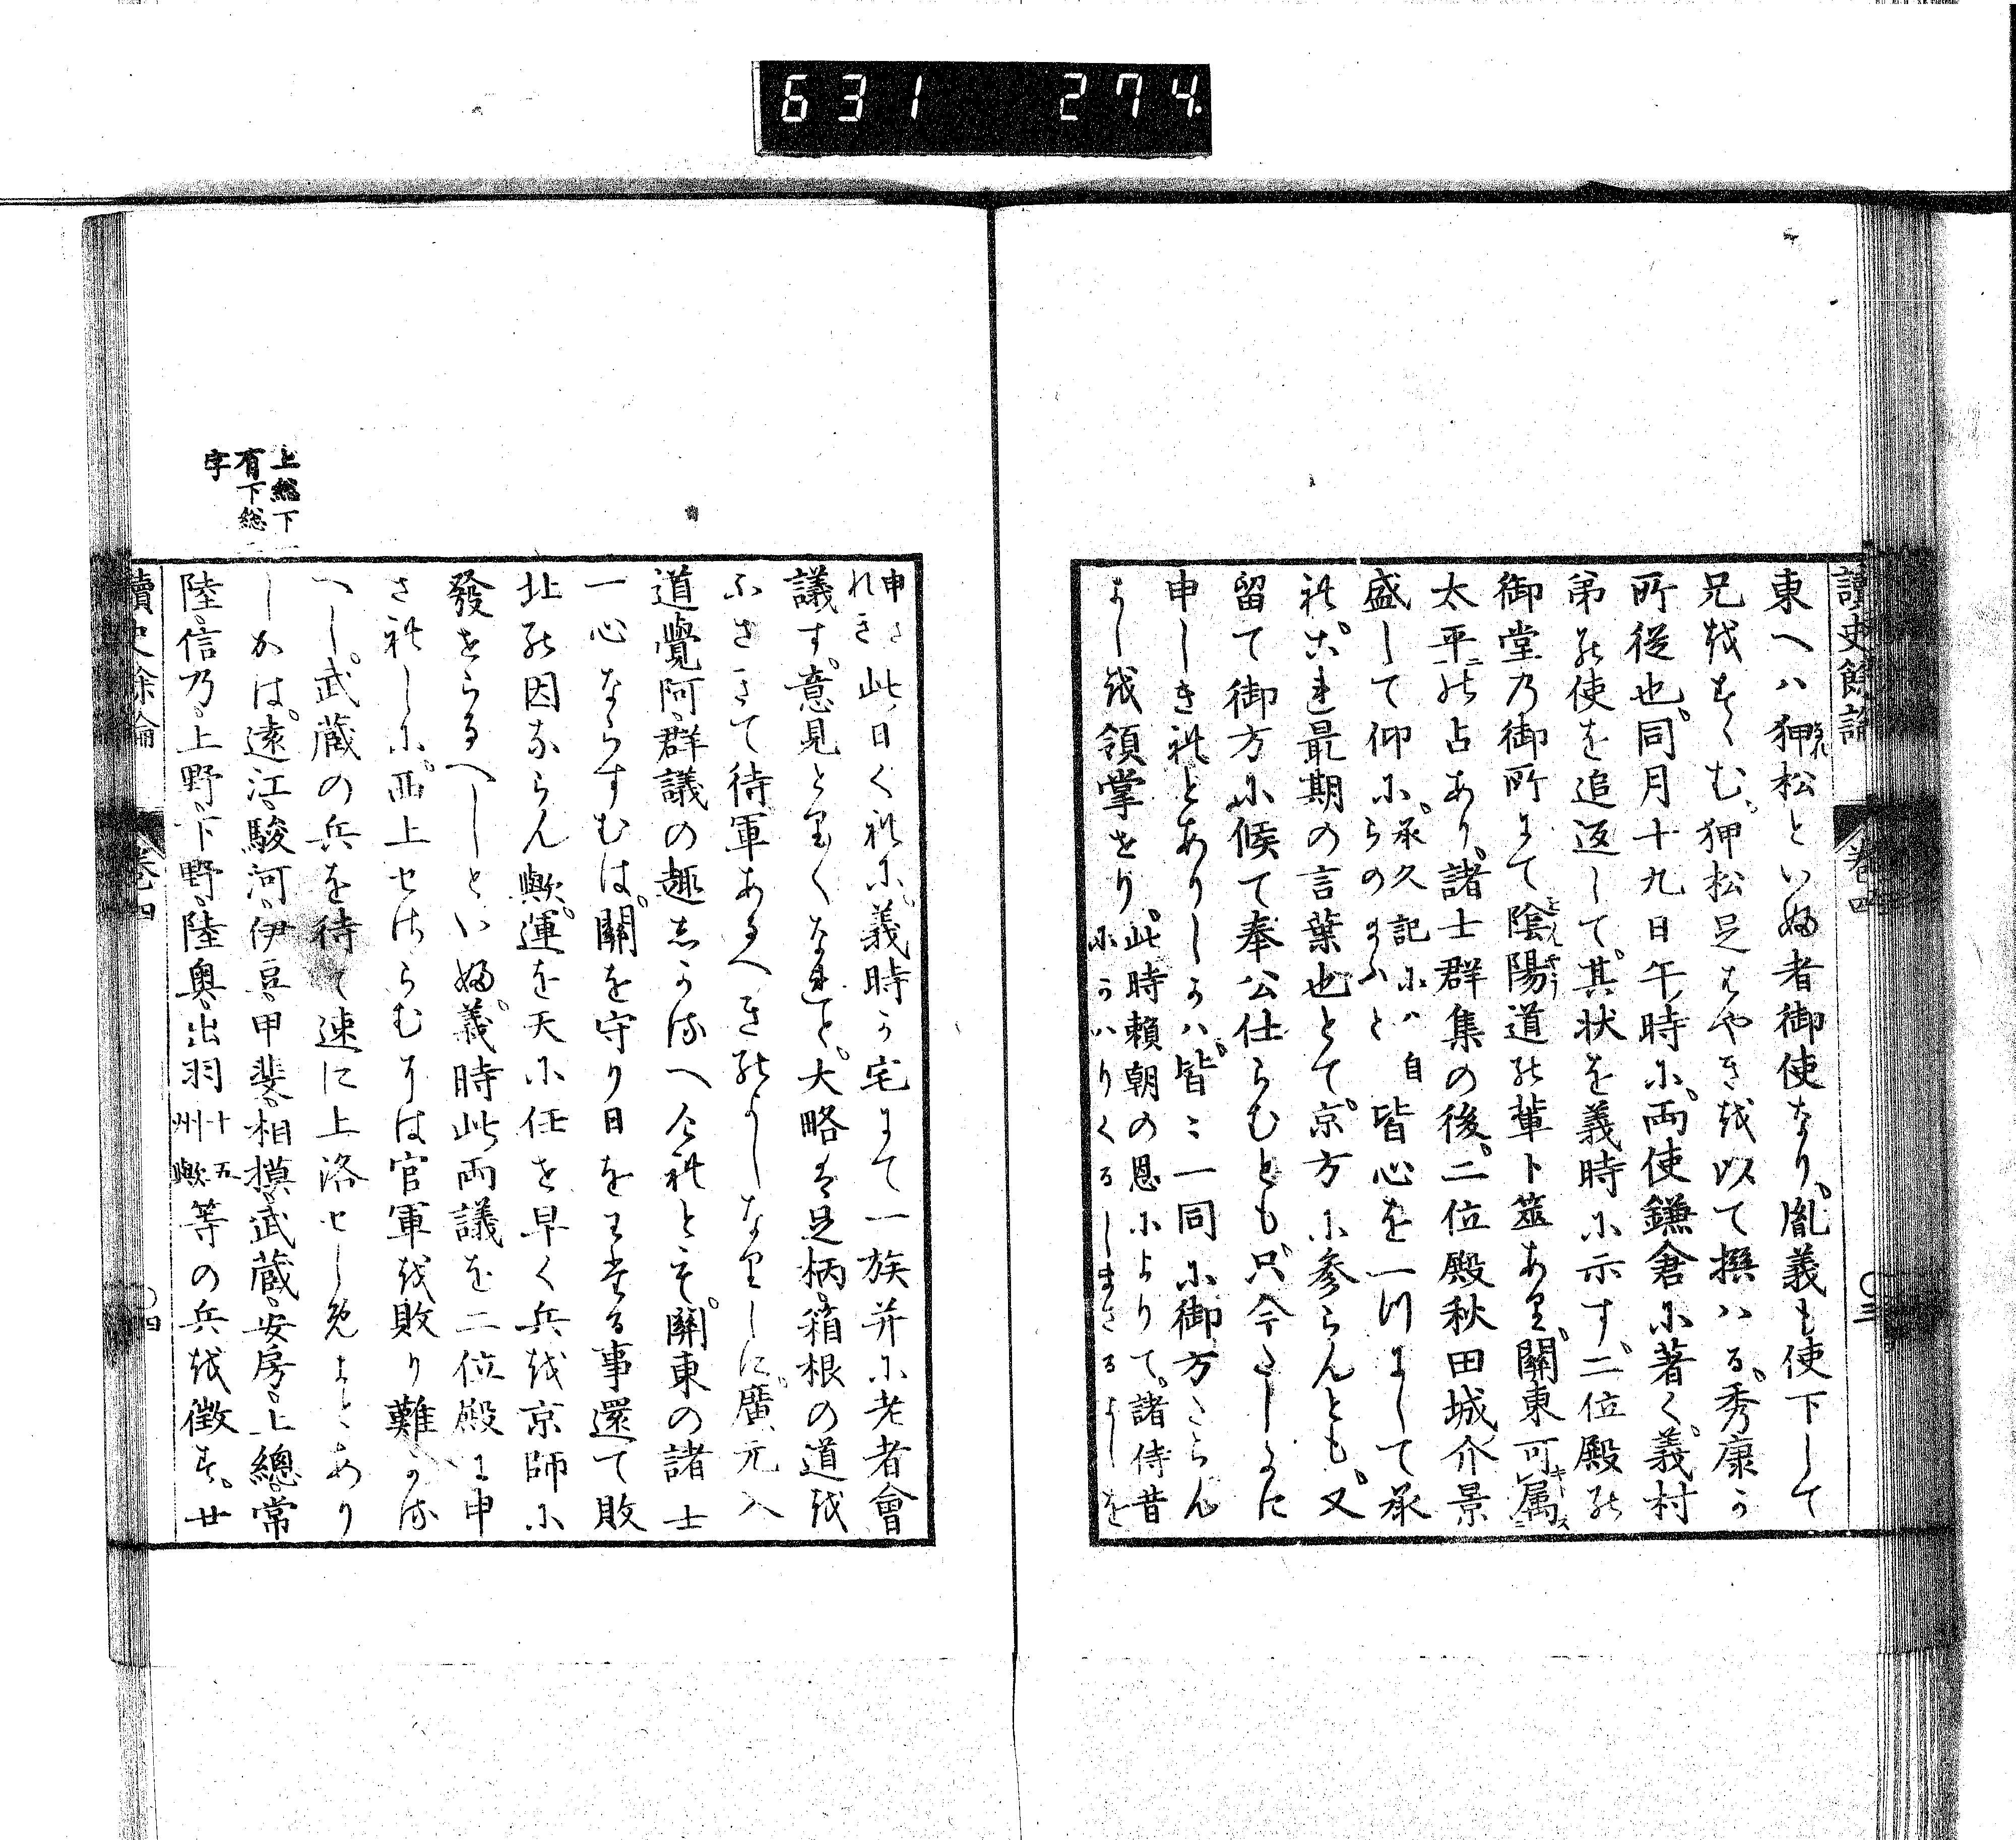 631 274.
讀史餘論 卷四 〇三
東へハ狎松といふ者御使なり。胤義も使下して
兄をすゝむ。狎松足はやきを以て撰ハる。秀康か
所從也。同月十九日午ノ時に。両使鎌倉に著く。義村
弟の使を追返して。其状を義時に示す。二位殿の
御堂乃御所にて陰陽道の輩卜筮あり。關東可属
太平ニの占あり。諸士群集の後。二位殿秋田城介景
盛して仰に。承久記にハ自らのまふと皆心を一つにして承
れ。これ最期の言葉也とて。京方に参らんとも。又
留て御方に候て奉公仕らむとも。只今たしかに
申しきれとありしかハ。皆ミ一同に御方たらん
よしを領掌せり。此時頼朝の恩によりて。諸侍昔
にかハりくるしまさるよしを
申されき此日くれに。義時か宅にて一族并に老者會
議す。意見とりくなれと。大略は足柄。箱根の道を
ふさきて待軍あるへきのよしなりしに。廣元入
道覺阿。群議の趣しかるへくれとも。關東の諸士
一心ならすむは。關を守り日をわたる事還て敗
北の因ならん歟。運を天に任せ早く兵を京師に
發せらるへしといふ。義時此両議を二位殿に申
されしに。西上せさらむには官軍を敗り難かる
へし。武蔵の兵を待て速に上洛せしめよとあり
しかは。遠江。駿河。伊豆。甲斐。相摸。武蔵。安房。上總。常
陸。信乃。上野。下野。陸奥。出羽十五州歟等の兵を徴す。廿
上総下
有下総
字
讀史餘論 卷四 〇四